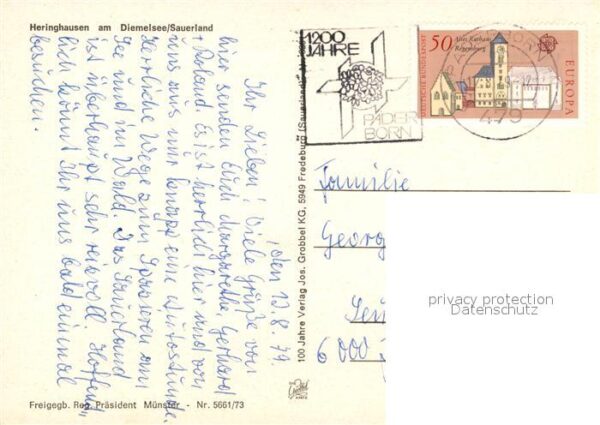 Heringhausen am Diemelsee/Sauerland
1200
JAHRE
PADER
BORN
50
Altes Rathaus
Regensburg
DEUTSCHE BUNDESPOST
EUROPA
479
den 13.8.79
Ihr Lieben! Viele Grüße von
hier senden Euch Margarethe, Gerhard
u. Es ist herrlich hier und von
uns aus nur knapp eine Autostunde.
Herrliche Wege zum Spazieren am
See und im Wald. Das Sauerland
ist überhaupt sehr reizvoll. Hoffent-
lich könnt Ihr uns bald einmal
besuchen.
100 Jahre Verlag Jos. Grobbel KG, 5949 Fredeburg (Sauerland)
Familie
Georg
6000
privacy protection
Datenschutz
Freigegb. Reg. Präsident Münster - Nr. 5661/73